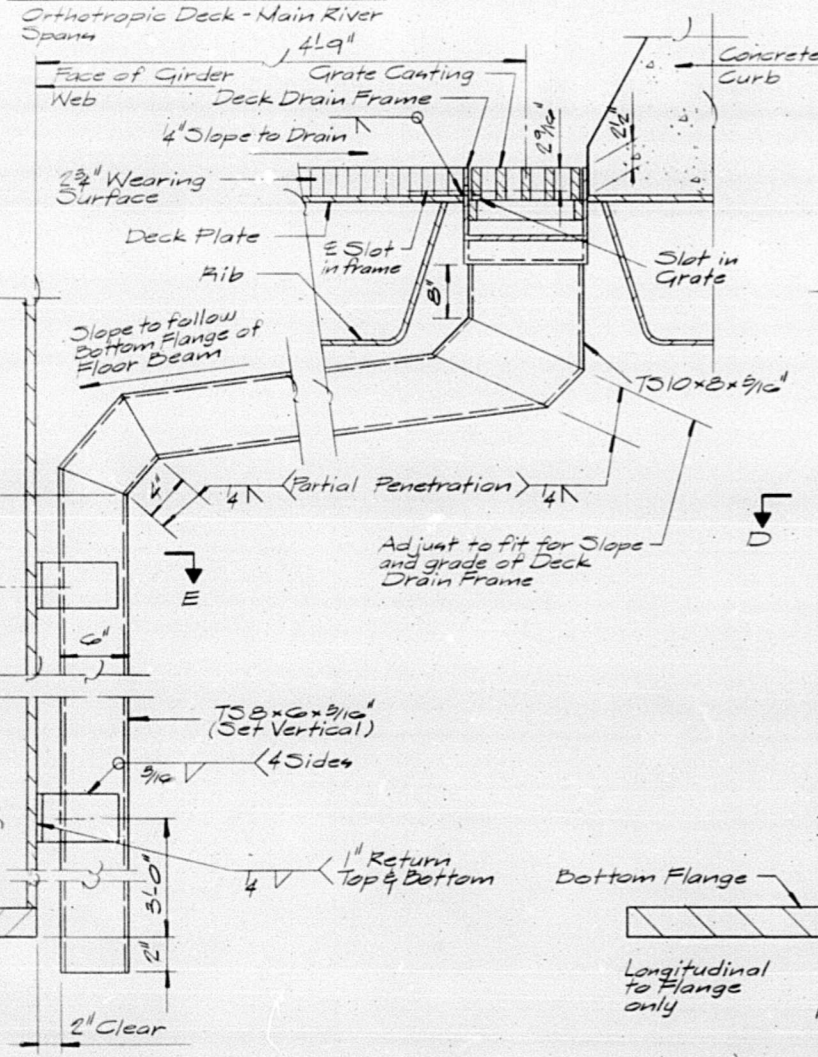 Orthotropic Deck - Main River
Spans
4'-9"
Face of Girder
Web
Grate Casting
Concrete
Curb
Deck Drain Frame
1/4" Slope to Drain
2 9/16"
2 1/2"
2 3/4" Wearing
Surface
Deck Plate
℄ Slot
in frame
Slot in
Grate
Rib
8"
Slope to follow
Bottom Flange of
Floor Beam
TS10×8×5/16"
4"
1/4
Partial Penetration
1/4
D
Adjust to fit for Slope
and grade of Deck
Drain Frame
E
6"
TS8×6×5/16"
(Set Vertical)
3/16
4 Sides
1" Return
Top & Bottom
1/4
3'-0"
2"
Bottom Flange
Longitudinal
to Flange
only
2" Clear